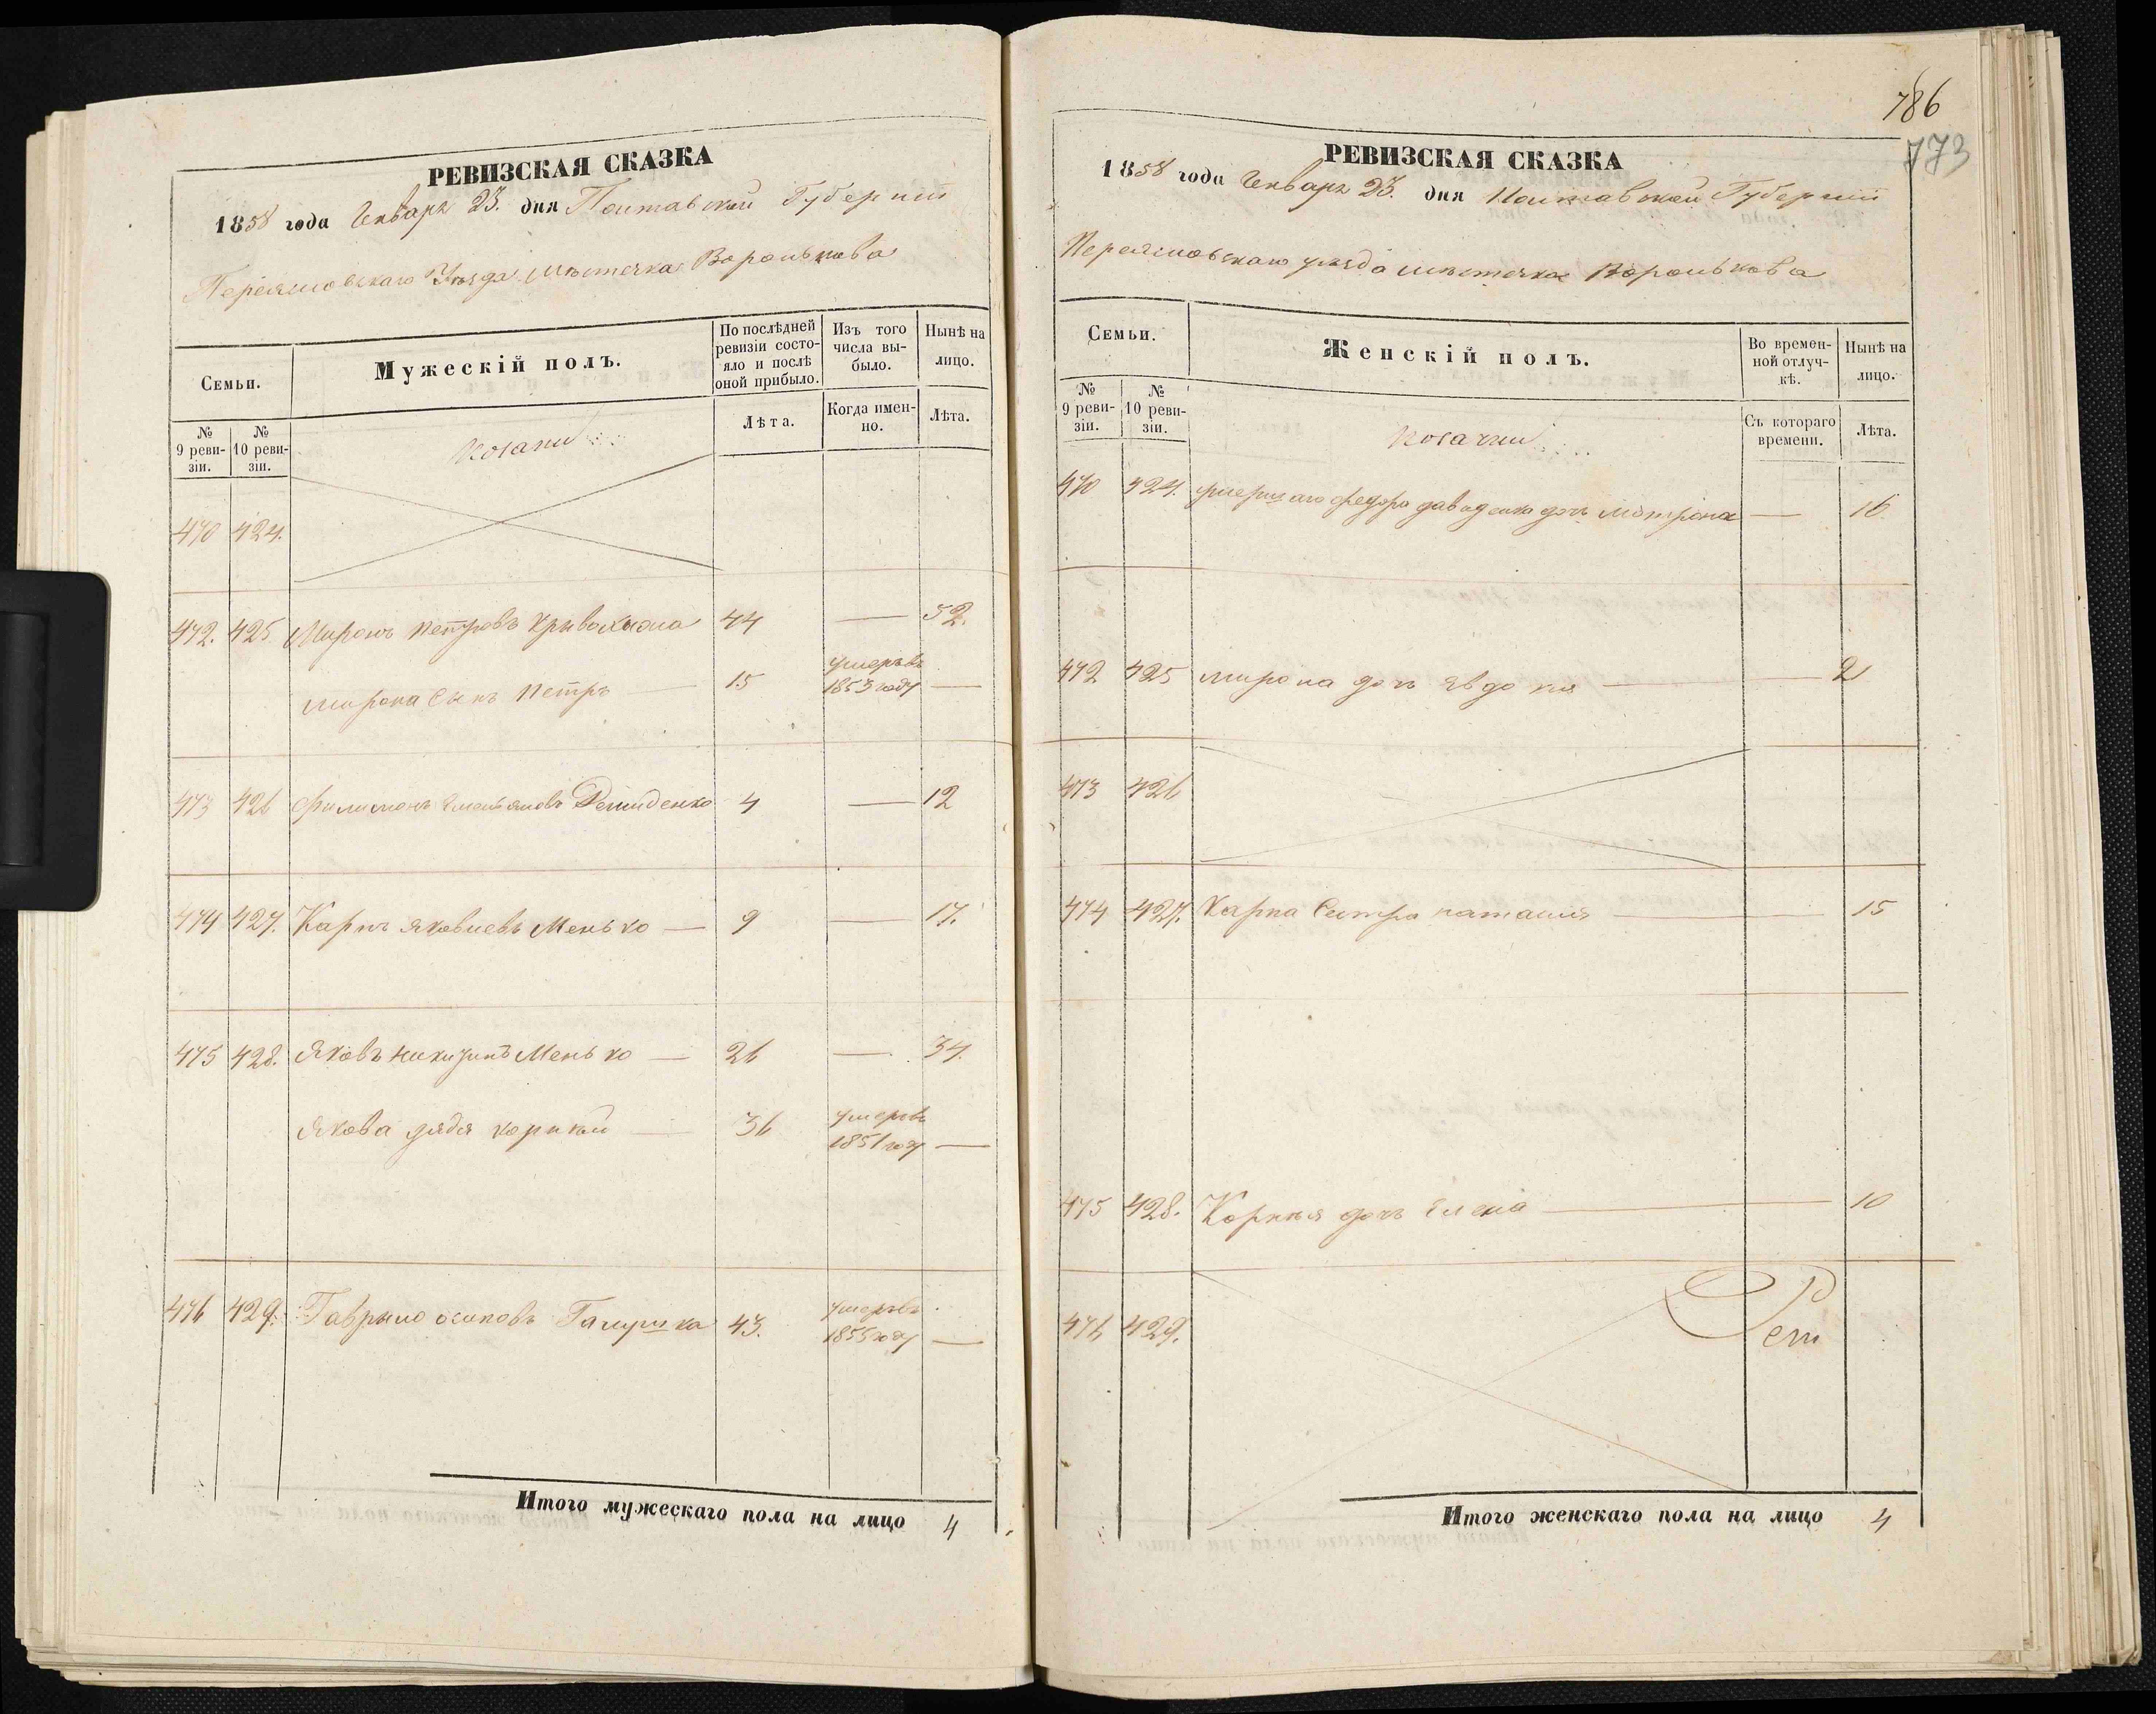 РЕВИЗСКАЯ СКАЗКА
1858 года Генваря 23. дня Полтавской Губерніи
Переясловскаго Уезда мѣстечка Воронькова
Семьи.
Мужескій полъ.
По послѣдней ревизіи состояло и послѣ оной прибыло.
Изъ того числа выбыло.
Нынѣ на лицо.
№ 9 ревизіи.
№ 10 ревизіи.
Козаки
Лѣта.
Когда именно.
Лѣта.
470 424.
472. 425 Миронъ Петровъ 44 — 52.
Мирона Сынъ Петръ — 15 умеръ въ 1853 году —
473 426 Филимонъ Емельяновъ Демиденко 4 — 12
474 427. Карпъ Яковлевъ Менько — 9 — 17.
475 428. Яковъ Никитинъ Менько — 26 — 34.
Якова дядя Корнѣй — 36 умеръ въ 1851 году —
476 429. Гаврыло осиповъ Галушка 43. умеръ въ 1855 году —
Итого мужескаго пола на лицо 4
786
773
РЕВИЗСКАЯ СКАЗКА
1858 года Генваря 23. дня Полтавской Губерніи
Переясловскаго уезда мѣстечка Воронькова
Семьи.
Женскій полъ.
Во временной отлучкѣ.
Нынѣ на лицо.
№ 9 ревизіи.
№ 10 ревизіи.
Козачки
Съ котораго времени.
Лѣта.
470 424. умершаго Федора давиденка дочь Мотрона — 16
472 425 Мирона дочь Явдокия — 21
473 426
474 427. Карпа Сестра наталия — 15
475 428. Корнѣя дочь Елена — 10
476 429.
Итого женскаго пола на лицо 4